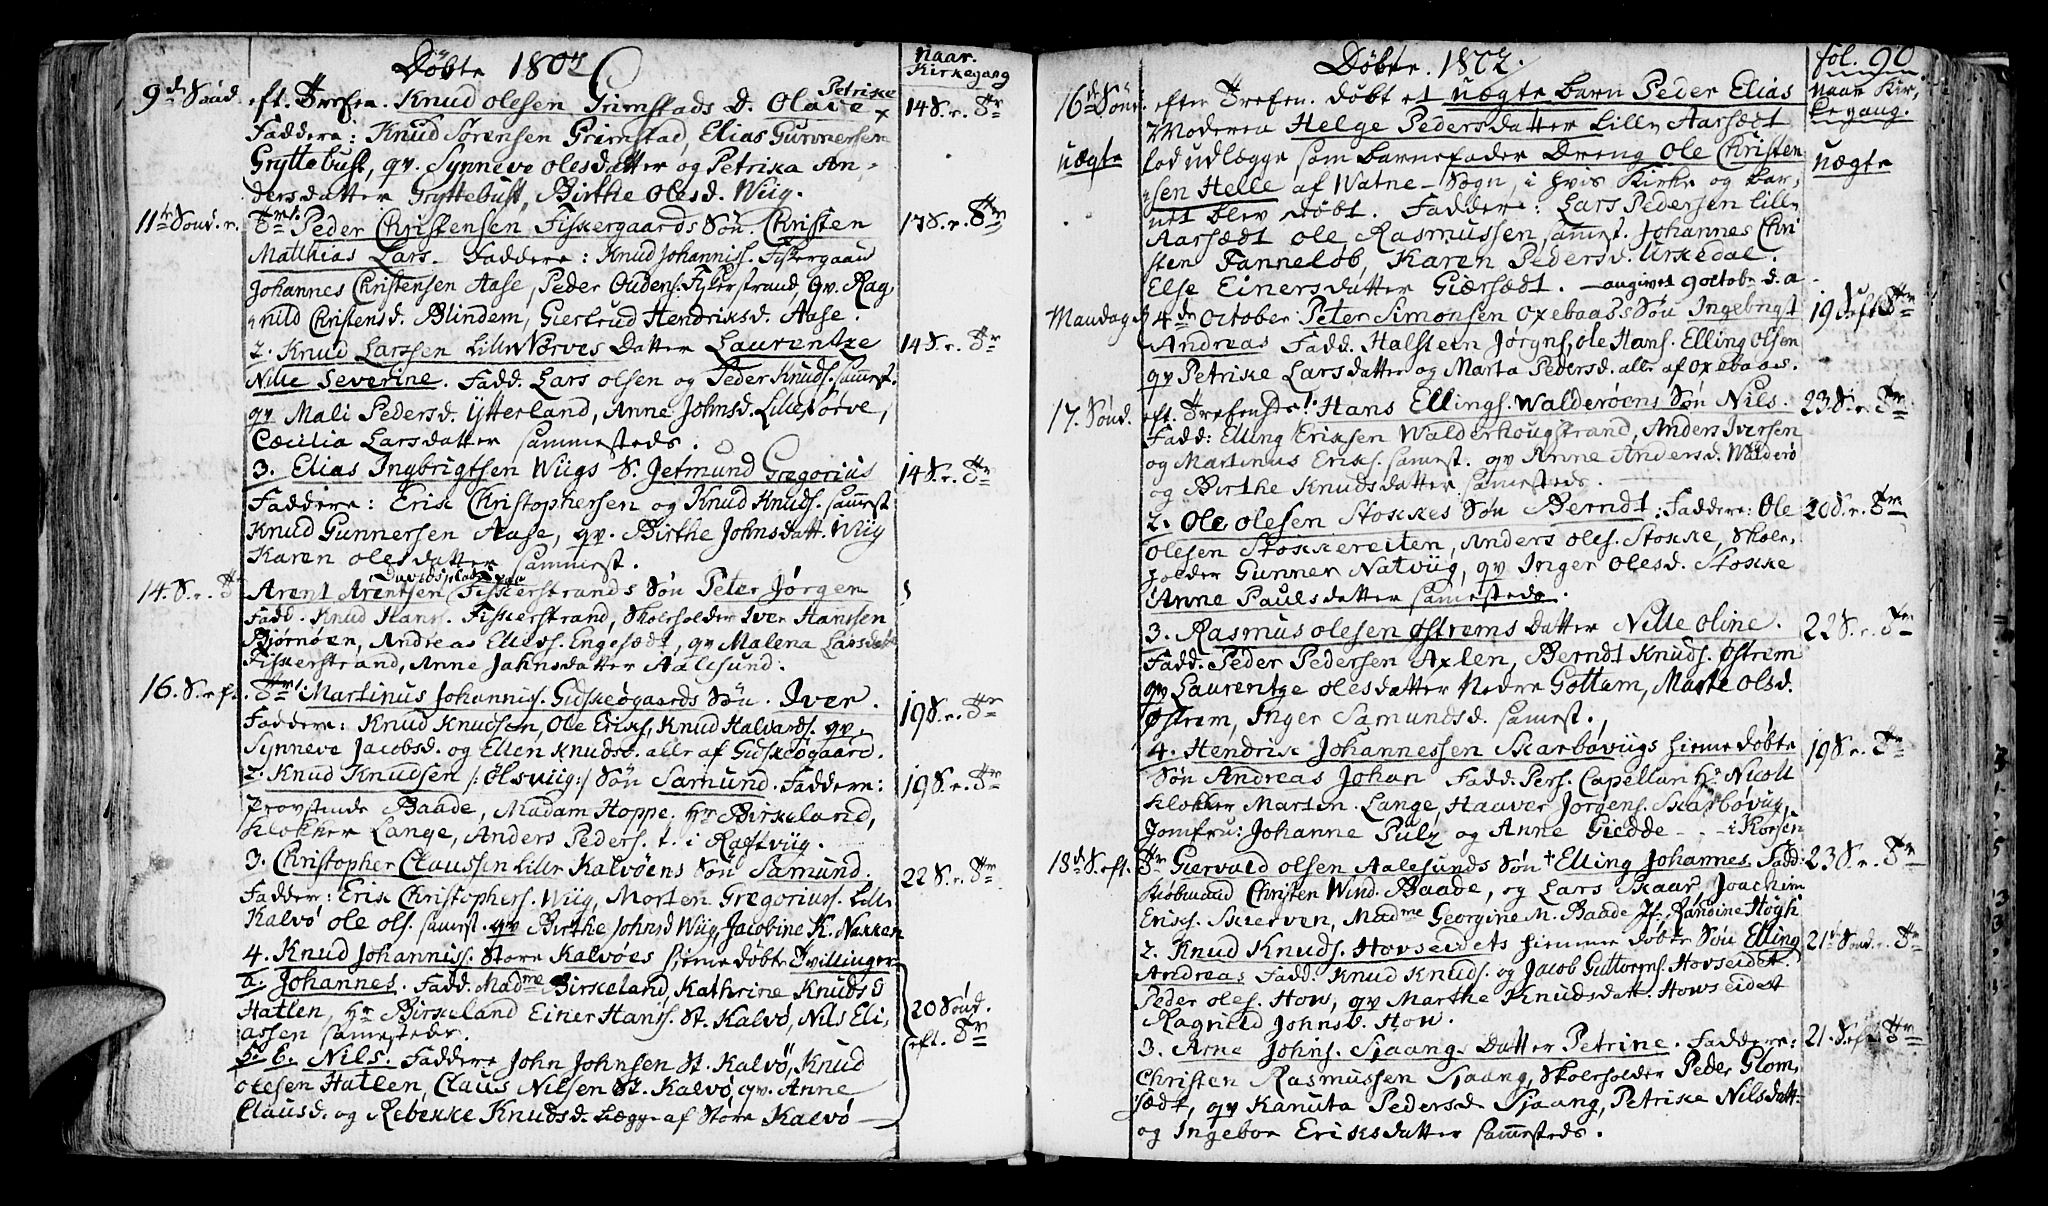 Døbte 1802
Naar
Kirkegang
9de Sønd. eft. Trefon. Knud Olesen Grimstads D. Olave Petrike 14 S. e. Tr
Faddere: Knud Sørensen Grimstad, Elias Gunnersen
Gryttebust, qv. Synneve Olesdatter og Petrika An-
dersdatter Gryttebust, Birthe Olesd. Wiig.
11te Sønd. e. Tr. 1. Peder Christensen Fiskergaards Søn. Christen 17 S. e. Tr
Matthias Lars. Faddere: Knud Johanniss. Fiskergaard
Johannes Christensen Aase, Peder Oudens. Fiskerstrand, qv. Rag-
nild Christensd. Blindem, Giertrud Hendriksd. Aase.
2. Knud Larssen Lille Nørves Datter Laurentze 14 S. e. Tr
Nille Severine. Fadd. Lars Olsen og Peder Knuds. samest.
qv Mali Pedersd. Ytterland, Anne Johnsd. Lillenørve,
Cæcilia Larsdatter sammesteds.
3. Elias Ingbrigtsen Wiigs S. Jetmund Gregorius 14 S. e. Tr
Faddere: Erik Christophersen og Knud Knuds. samest
Knud Gunnersen Aase, qv. Birthe Johnsdatt. Wiig
Karen Olesdatter sammest.
14. S. e. Tr Arent Arentsen Fiskerstrands Søn Peter Jørgen
Fadd. Knud Hans. Fiskerstrand, Skoleholder Iver Hanssen
Bjørnøen, Andreas Ellefs. Engesædt, qv Malena Larsdatt
Fiskerstrand, Anne Jahnsdatter Aalesund.
16. S. eft. Tr 1 Martinus Johanniss. Gidskeøgaards Søn. Iver. 19 S. e. Tr
Faddere: Knud Knudsen, Ole Eriks, Knud Halvards. qv.
Synneve Jacobsd. og Ellen Knudsd. alle af Gidskeøgaard.
2. Knud Knudsen /: Ølsviig :/ Søn Samund. Faddere: 19 S. e. Tr
Provstinde Baade, Madam Hoppe, Hr Birkeland,
Klokker Lange, Anders Peders. t. i Raftviig.
3. Christopher Claussen Lille Kalvøens Søn Samund. 22 S. e. Tr
Faddere: Erik Christophers. Wiig, Morten Gregoriuss. Lille
Kalvø Ole Ols. samest. qv Birthe Johnsd Wiig, Jacobine K. Nakken
4. Knud Johanniss. Store Kalvøes hiemme døbte Tvillinger
a. Johannes. Fadd. Madme Birkeland, Kathrine Knudsd
Hatlen, Hr Birkeland Einer Hanss. St. Kalvø, Nils Eli-
assen samesteds. 20 Sønd.
5. b. Nils. Faddere John Johnsen St. Kalvø, Knud eft. Tr
Olesen Hatlen, Claus Nilsen St. Kalvø, qv. Anne
Clausd. og Rebekke Knudsd. begge af Store Kalvø
Døbte. 1802.
fol. 90
Naar Kir-
kegang.
16de Sønd. efter Trefon. døbt et uægte Barn Peder Elias
Moderen Helge Pedersdatter Lille Aarsædt
uægte lod udlægge som Barnefader Dreng Ole Christen- uægte
sen Helle af Watne-Sogn, i hvis Kirke og Bar-
net blev døbt. Faddere: Lars Pedersen Lille
Aarsædt Ole Rasmussen, samest. Johannes Chri
sten Tanneløb, Karen Pedersd. Urkedal.
Else Einersdatter Giærsædt. — angivet 9 octobr. d. a
Mandag d 4de October Peter Simonsen Oxebaass Søn Ingebrigt 19 S. eft. Tr
Andreas Fadd. Halsteen Jørgns, Ole Hans. Elling Olsen
qv Petrike Larsdatter og Marta Pedersd. alle af Oxebaas.
17. Sønd. eft. Trefon. 1. Hans Ellings. Walderøens Søn Nils. 23 S. e. Tr.
Fadd: Elling Eriksen Walderhougstrand, Anders Iversen
og Martinus Eriks. samest. qv Anne Andersd. Walderø
og Birthe Knudsdatter samesteds.
2. Ole Olesen Stokkes Søn Berndt: Faddere: Ole 20 S. e. Tr
Olesen Stokkereiten, Anders Oles. Stokke, Skole-
holder Gunner Natviig, qv Inger Olesd. Stokke
Anne Paulsdatter samesteds.
3. Rasmus Olesen Østrems Datter Nille Oline. 22 S. e. Tr
Fadd. Peder Pedersen Axlen, Berndt Knuds. Østrem
qv Laurentze Olesdatter Nedre Gottam, Marte Olsd.
Østrem, Inger Samundsd. samest.
4. Hendrik Johannessen Skarbøviigs hieme døbte 19 S. e. Tr
Søn Andreas Johan Fadd. Pers. Capellan Hr Nicoll
Klokker Marten Lange, Haaver Jørgens. Skarbøviig,
Jomfru: Johanne Pulz og Anne Giedde - - - i Korsen
18de S. eft. Tr Giervald Olsen Aalesunds Søn + Elling Johannes. Fadd: 23 S. e. Tr
Kiøbmand Christen Wind. Baade, og Lars Skaar, Joachim
Eriks. Skierven, Madme Georgine M. Baade Jf. Randine Høgh
2. Knud Knuds. Hovseidets hiemme døbte Søn Elling 21de Sønd. e. Tr
Andreas Fadd. Knud Knuds. og Jacob Guttorms. Hovseidet.
Peder Oles. How, qv Marthe Knudsdatt. Howseidet
Ragnild Johnsd. How.
3. Arne Johns. Sjaangs Datter Petrine. Faddere: 21. S. eft. Tr
Christen Rasmussen Sjaang, Skoleholder Peder Glom-
sædt, qv Kanuta Pedersd Sjaang, Petrike Nilsdatt
og Ingebor Eriksdatter samesteds.